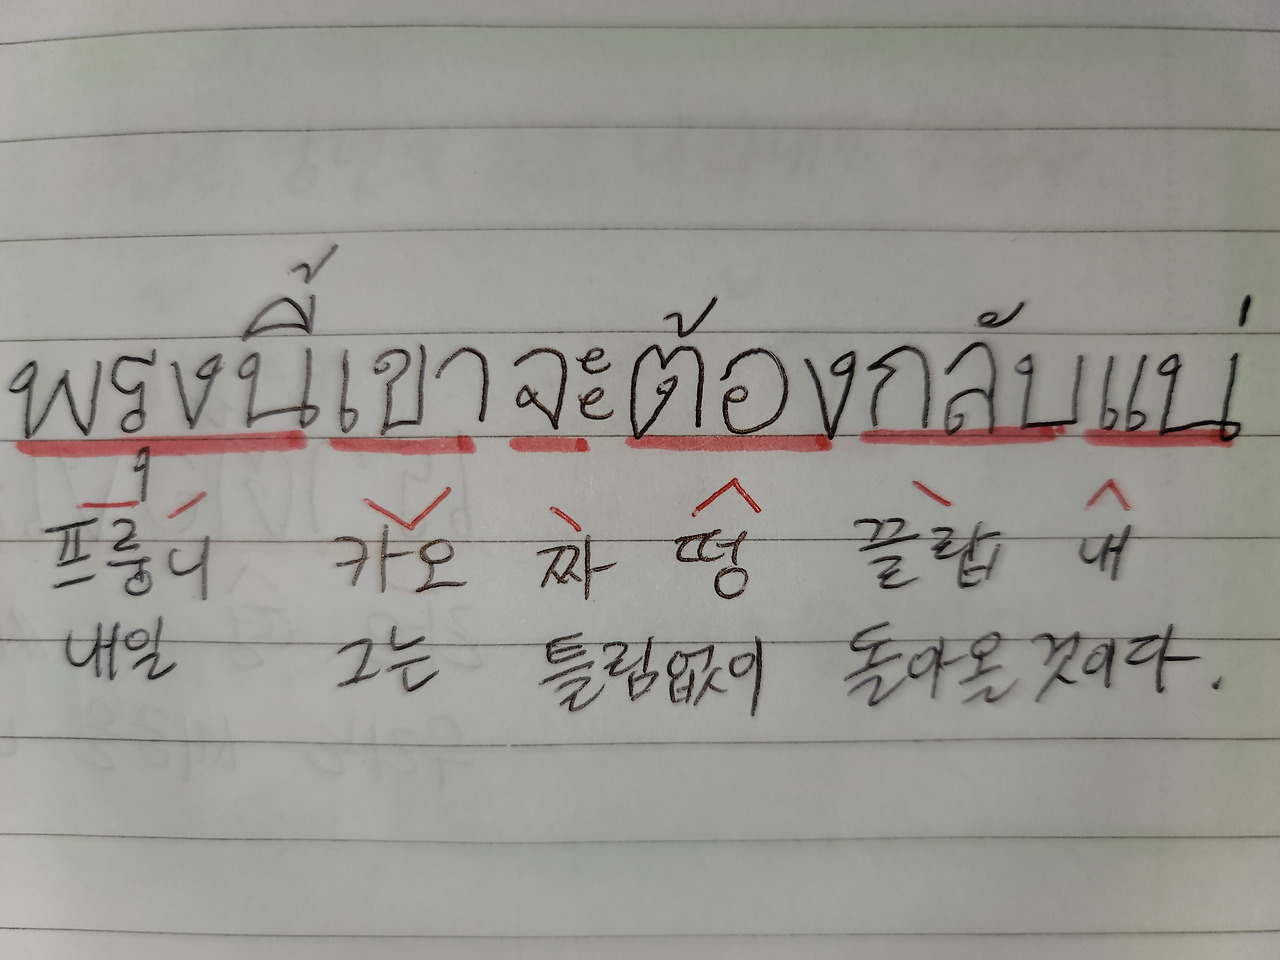 พรุ่งนี้เขาจะต้องกลับแน่
프룽니 카오 짜 떵 끌랍 내
내일 그는 틀림없이 돌아올 것이다.